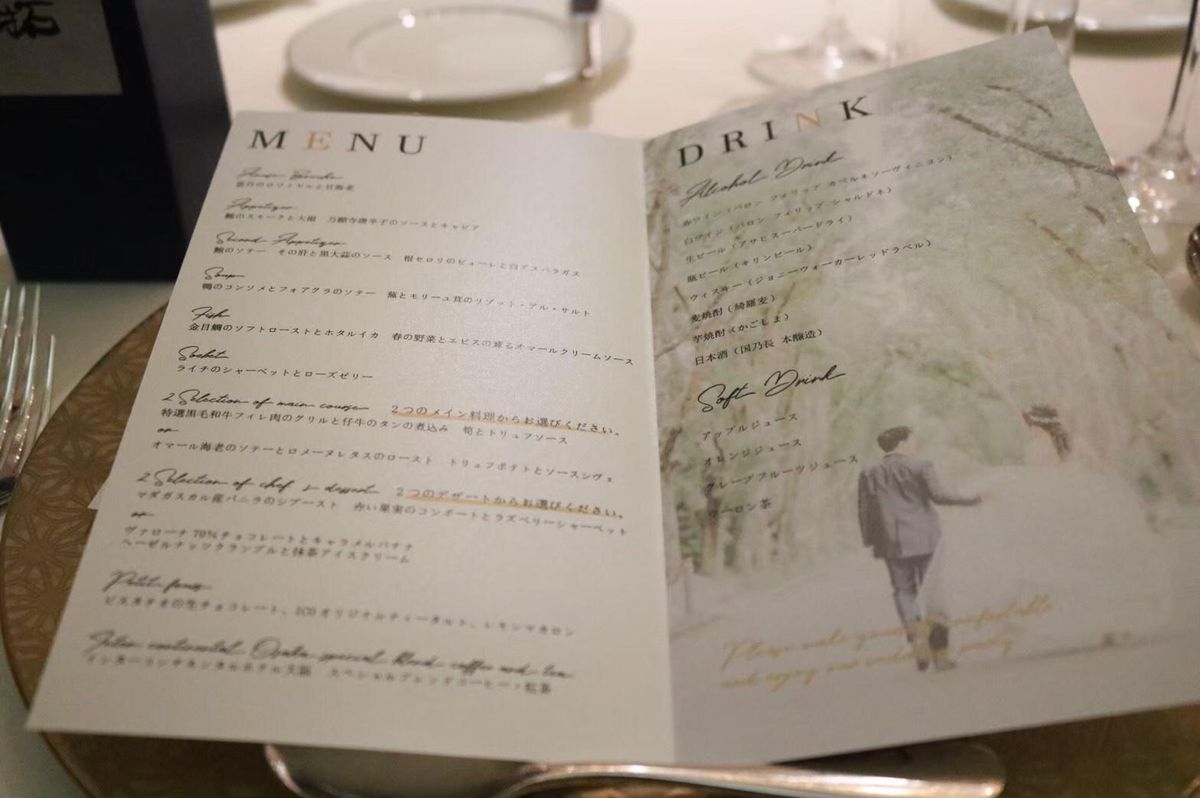 拓
MENU
Amuse Bouche
雲丹のロワイヤルと甘海老
Appetizer
鰆のスモークと大根 万願寺唐辛子のソースとキャビア
Second Appetizer
鮑のソテー その肝と黒大蒜のソース 根セロリのピューレと白アスパラガス
Soup
鴨のコンソメとフォアグラのソテー 蕪とモリーユ茸のリゾット・アル・サルト
Fish
金目鯛のソフトローストとホタルイカ 春の野菜とエビスの薫るオマールクリームソース
Sorbet
ライチのシャーベットとローズゼリー
2 Selection of main course 2つのメイン料理からお選びください。
特選黒毛和牛フィレ肉のグリルと仔牛のタンの煮込み 筍とトリュフソース
or
オマール海老のソテーとロメーヌレタスのロースト トリュフポテトとソースシヴェ
2 Selection of chef's dessert 2つのデザートからお選びください。
マダガスカル産バニラのシブースト 赤い果実のコンポートとラズベリーシャーベット
or
ヴァローナ70%チョコレートとキャラメルバナナ
ヘーゼルナッツクランブルと抹茶アイスクリーム
Petit fours
ピスタチオの生チョコレート、ICOオリジナルティータルト、レモンマカロン
Inter continental Osaka special blend coffee and tea
インターコンチネンタルホテル大阪 スペシャルブレンドコーヒー・紅茶
DRINK
Alcohol Drink
赤ワイン（バロン フィリップ カベルネソーヴィニヨン）
白ワイン（バロン フィリップ シャルドネ）
生ビール（アサヒスーパードライ）
瓶ビール（キリンビール）
ウィスキー（ジョニーウォーカーレッドラベル）
麦焼酎（綺羅麦）
芋焼酎（かごしま）
日本酒（国乃長 本醸造）
Soft Drink
アップルジュース
オレンジジュース
グレープフルーツジュース
ウーロン茶
Please make yourself comfortable
and enjoy our wedding party